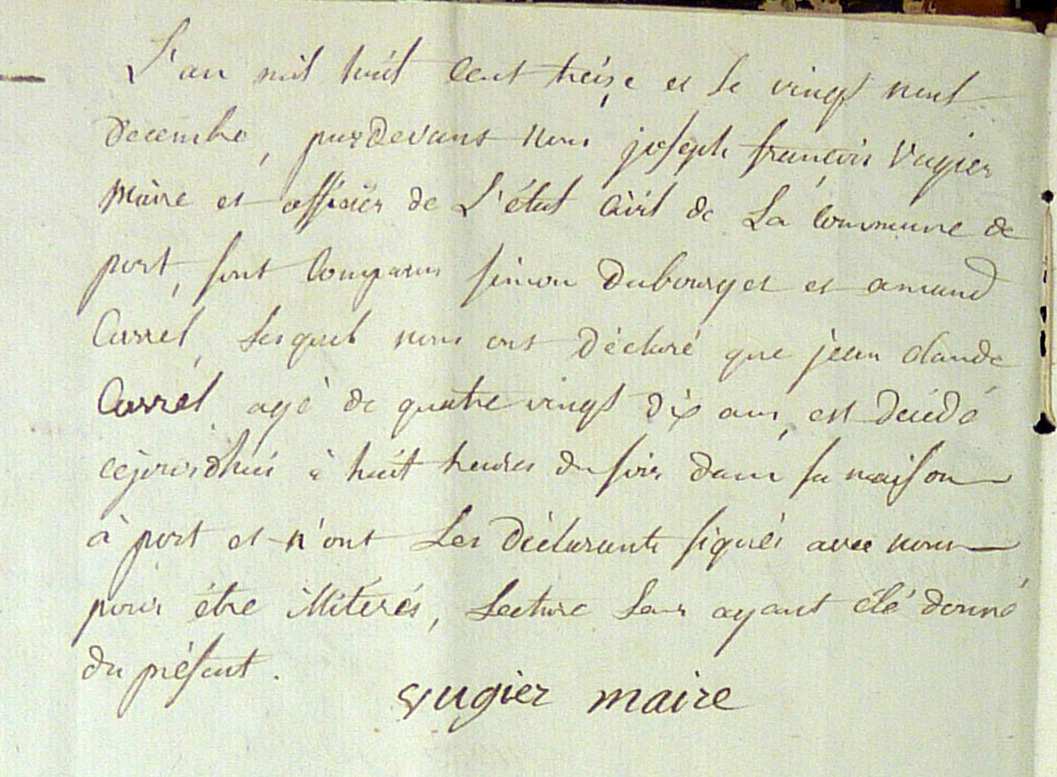 L'an mil huit cent treize et le vingt neuf
decembre, pardevant nous joseph françois Vugier
maire et officier de L'état civil de La Commune de
port, sont Comparus simon Dubourget et amand
Carrel, Lesquels nous ont déclaré que jean claude
Carrel agé de quatre vingt dix ans, est décédé
cejourdhui à huit heures du soir dans sa maison
à port et n'ont Les déclarants signés avec nous
pour être illiterés, Lecture Leur ayant élé donné
du présent.
vugier maire